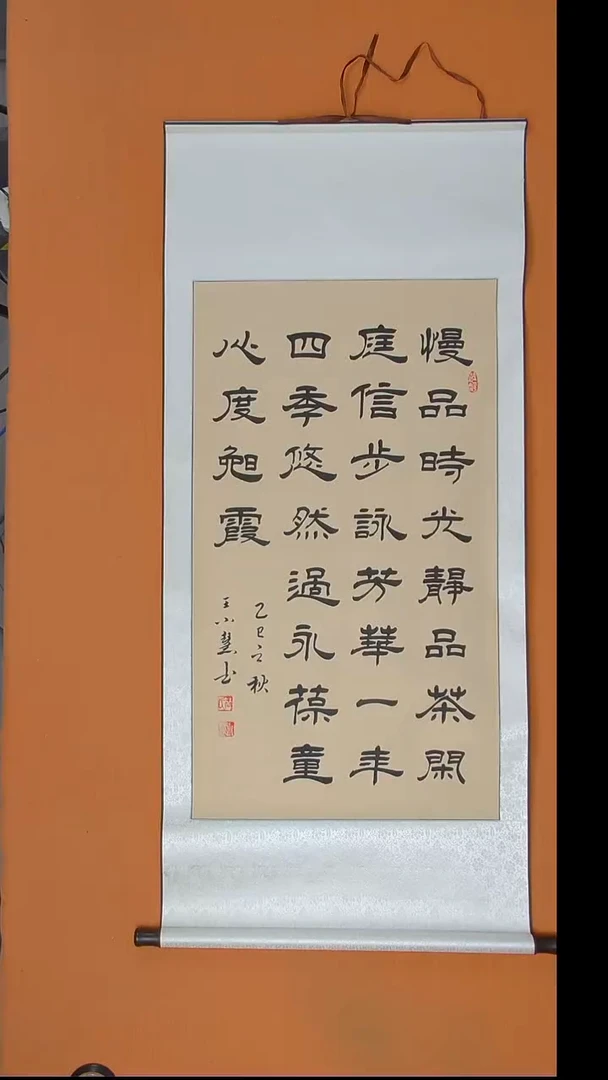 慢品時光靜品茶閑
庭信步詠芳華一年
四季悠然過永葆童
心度晚霞
乙巳之秋
王小慧书